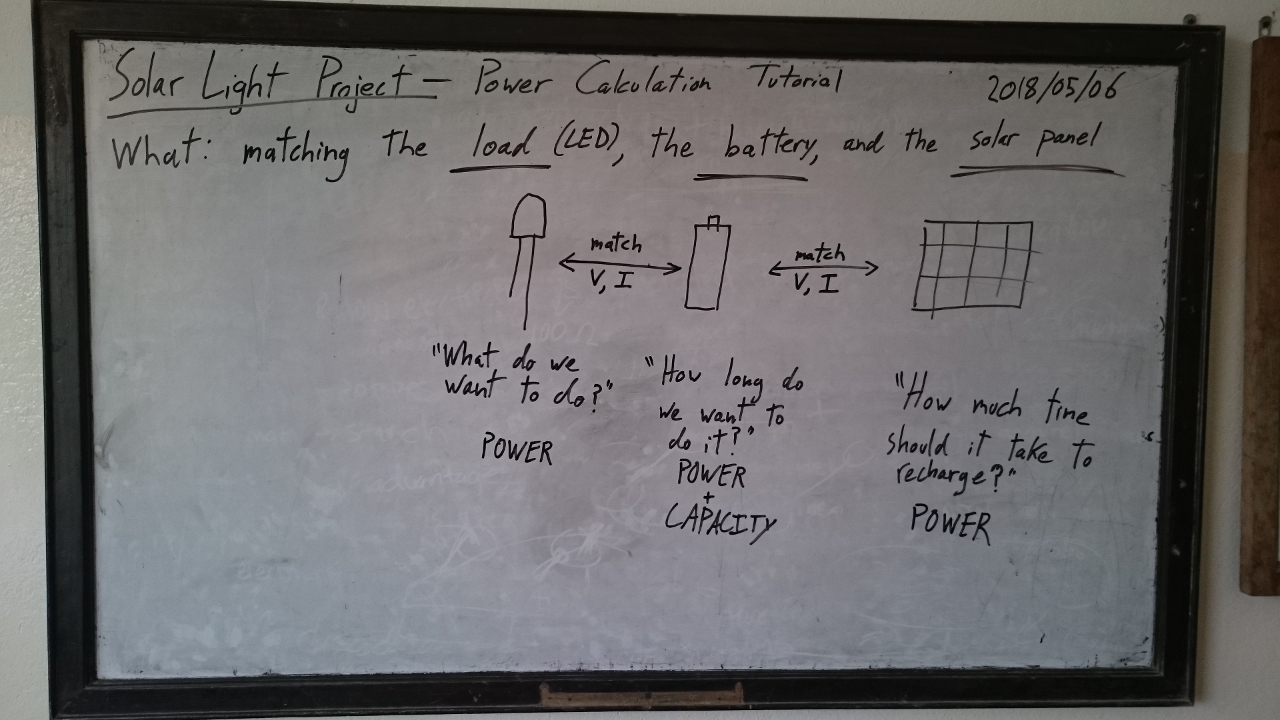 Solar Light Project — Power Calculation Tutorial 2018/05/06
What: matching the load (LED), the battery, and the solar panel
match
V, I
match
V, I
"What do we
want to do?"
POWER
"How long do
we want to
do it?"
POWER
+
CAPACITY
"How much time
should it take to
recharge?"
POWER